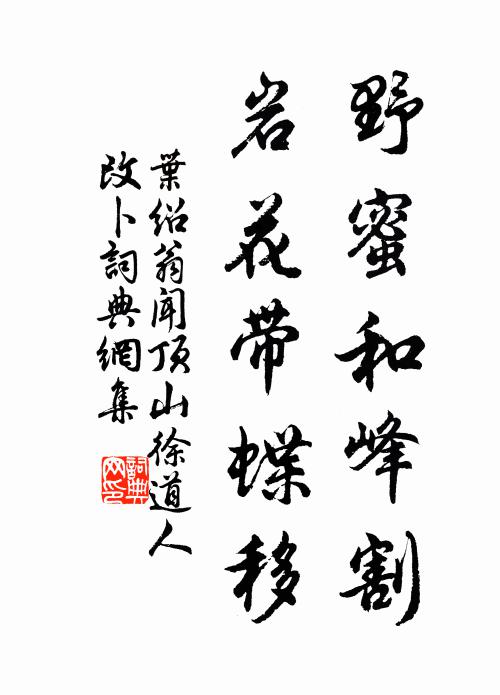 野蜜和峰割
岩花带蝶移
葉紹翁闻顶山徐道人
改卜詞典網集
詞典
网印